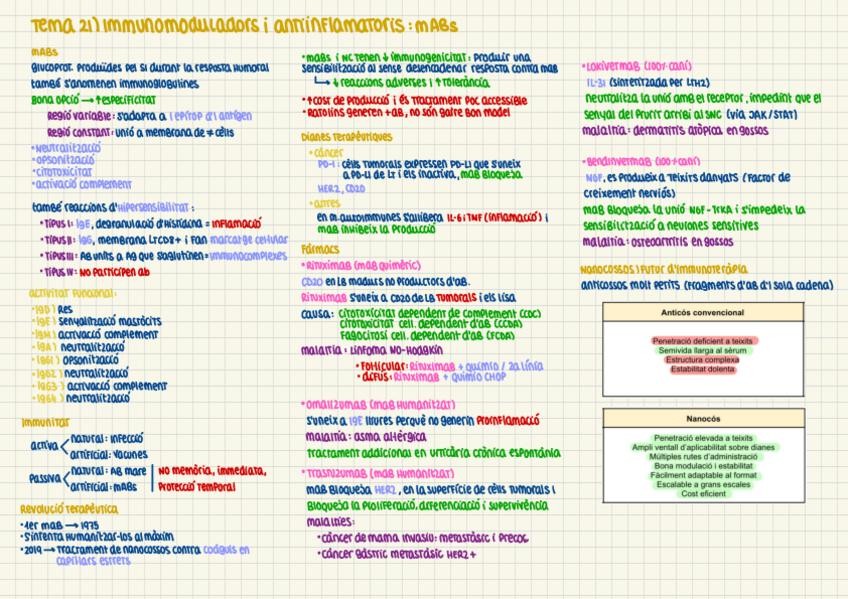 Tema 21) Immunomoduladors i antiinflamatoris: mABs
mABs
glucoprot. produïdes pel si durant la resposta humoral
també s'anomenen immunoglobulines
Bona opció → ↑especificitat
Regió variable: s'adapta a l'epítop d'1 antigen
Regió constant: unió a membrana de ≠ cèl·ls
• neutralització
• opsonització
• citotoxicitat
• activació complement
també reaccions d'hipersensibilitat:
• Tipus I: IgE, degranulació d'histidina = inflamació
• Tipus II: IgG, membrana LTCD8+ i fan marcatge cel·lular
• Tipus III: AB units a Ag que s'aglutinen = immunocomplexes
• Tipus IV: no participen ab
activitat funcional:
· IgD) Res
· IgE) senyalització mastòcits
· IgM) activació complement
· IgA) neutralització
· IgG1) opsonització
· IgG2) neutralització
· IgG3) activació complement
· IgG4) neutralització
Immunitat
activa < natural: infecció
artificial: vacunes
passiva < natural: AB mare
artificial: mABs
No memòria, immediata,
protecció temporal
Revolució terapèutica
• 1er mAB → 1975
• s'intenta humanitzar-los al màxim
• 2019 → tractament de nanocossos contra coàguls en
capil·lars estrets
• mABs i NC tenen ↓ immunogenicitat: produir una
sensibilització al sense desencadenar resposta contra mAB
↳ ↓ reaccions adverses i ↑ tolerància
• ↑ cost de producció i és tractament poc accessible
• Ratolins generen +AB, no són gaire bon model
Dianes terapèutiques
• càncer
PD-1: cèl·ls tumorals expressen PD-L1 que s'uneix
a PD-L1 de LT i els inactiva, mAB bloqueja
HER2, CD20
• altres
en m. autoimmunes s'allibera IL-6 i TNF (inflamació) i
mAB inhibeix la producció
Fàrmacs
• Rituximab (mAB quimèric)
CD20 en LB madurs no productors d'AB.
Rituximab s'uneix a CD20 de LB tumorals i els lisa
causa: citotoxicitat dependent de complement (CDC)
citotoxicitat cel·l. dependent d'AB (CCDA)
Fagocitosi cel·l. dependent d'AB (FCDA)
malaltia: linfoma no-Hodgkin
• Fol·licular: Rituximab + quimio / 2a línia
• difús: Rituximab + quimio CHOP
• Omalizumab (mAB humanitzat)
s'uneix a IgE lliures perquè no generin proinflamació
malaltia: asma al·lèrgica
tractament addicional en urticària crònica espontània
• Trastuzumab (mAB humanitzat)
mAB bloqueja HER2, en la superfície de cèl·ls tumorals i
bloqueja la proliferació, diferenciació i supervivència
malalties:
• càncer de mama invasiu: metastàsic i precoç
• càncer gàstric metastàsic HER2+
• Lokivetmab (100% caní)
IL-31 (sintetitzada per LTH2)
neutralitza la unió amb el receptor, impedint que el
senyal del prurit arribi al SNC (via JAK/STAT)
malaltia: dermatitis atòpica en gossos
• Bendinvetmab (100% caní)
NGF, es produeix a teixits danyats (factor de
creixement nerviós)
mAB bloqueja la unió NGF-TrkA i s'impedeix la
sensibilització a neurones sensitives
malaltia: osteoartritis en gossos
Nanocossos i futur d'immunoteràpia
anticossos molt petits (fragments d'AB d'1 sola cadena)
Anticós convencional
Penetració deficient a teixits
Semivida llarga al sèrum
Estructura complexa
Estabilitat dolenta
Nanocós
Penetració elevada a teixits
Ampli ventall d'aplicabilitat sobre dianes
Múltiples rutes d'administració
Bona modulació i estabilitat
Fàcilment adaptable al format
Escalable a grans escales
Cost eficient